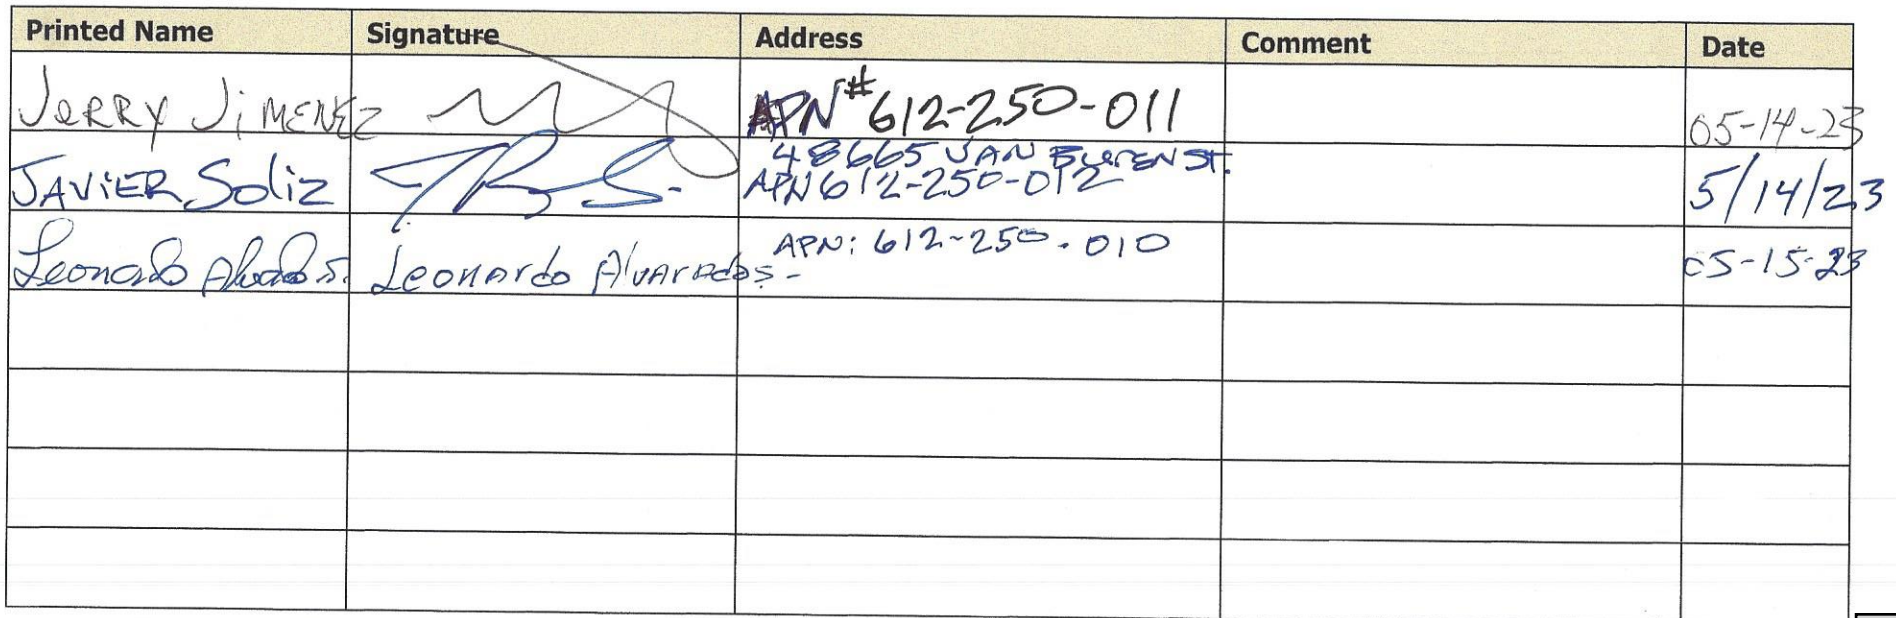 Printed Name Signature Address Comment Date
JeRRY JiMENEZ APN# 612-250-011 05-14-23
JAViER Soliz 48665 VAN BUREN St. 5/14/23
APN 612-250-012
Leonardo Alvarado S. Leonardo Alvarado S.- APN: 612-250-010 05-15-23